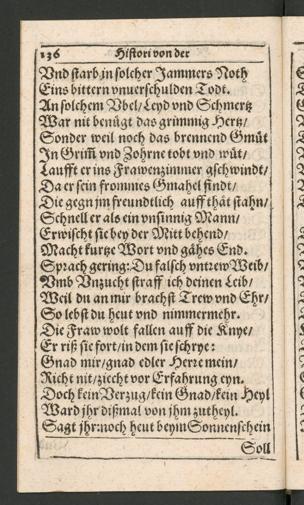 136 Histori von der
Vnd starb in solcher Jammers Noth
Eins bittern vnuerschulden Todt.
An solchem Vbel/Leyd vnd Schmertz
War nit benügt das grimmig Hertz/
Sonder weil noch das brennend Gmüt
In Grim̃ vnd Zohrne tobt vnd wüt/
Laufft er ins Frawenzimmer gschwindt/
Da er sein frommes Gmahel findt/
Die gegn jm freundtlich auff thät stahn/
Schnell er als ein vnsinnig Mann/
Erwischt sie bey der Mitt behend/
Macht kurtze Wort vnd gähes End.
Sprach gering: Du falsch vntrew Weib/
Vmb Vnzucht straff ich deinen Leib/
Weil du an mir brachst Trew vnd Ehr/
So lebst du heut vnd nimmermehr.
Die Fraw wolt fallen auff die Knye/
Er riß sie fort/in dem sie schrye:
Gnad mir/gnad edler Herre mein/
Richt nit/ziecht vor Erfahrung eyn.
Doch kein Verzug/kein Gnad/kein Heyl
Ward jhr dißmal von jhm zutheyl.
Sagt jhr: noch heut beym Sonnenschein
Soll